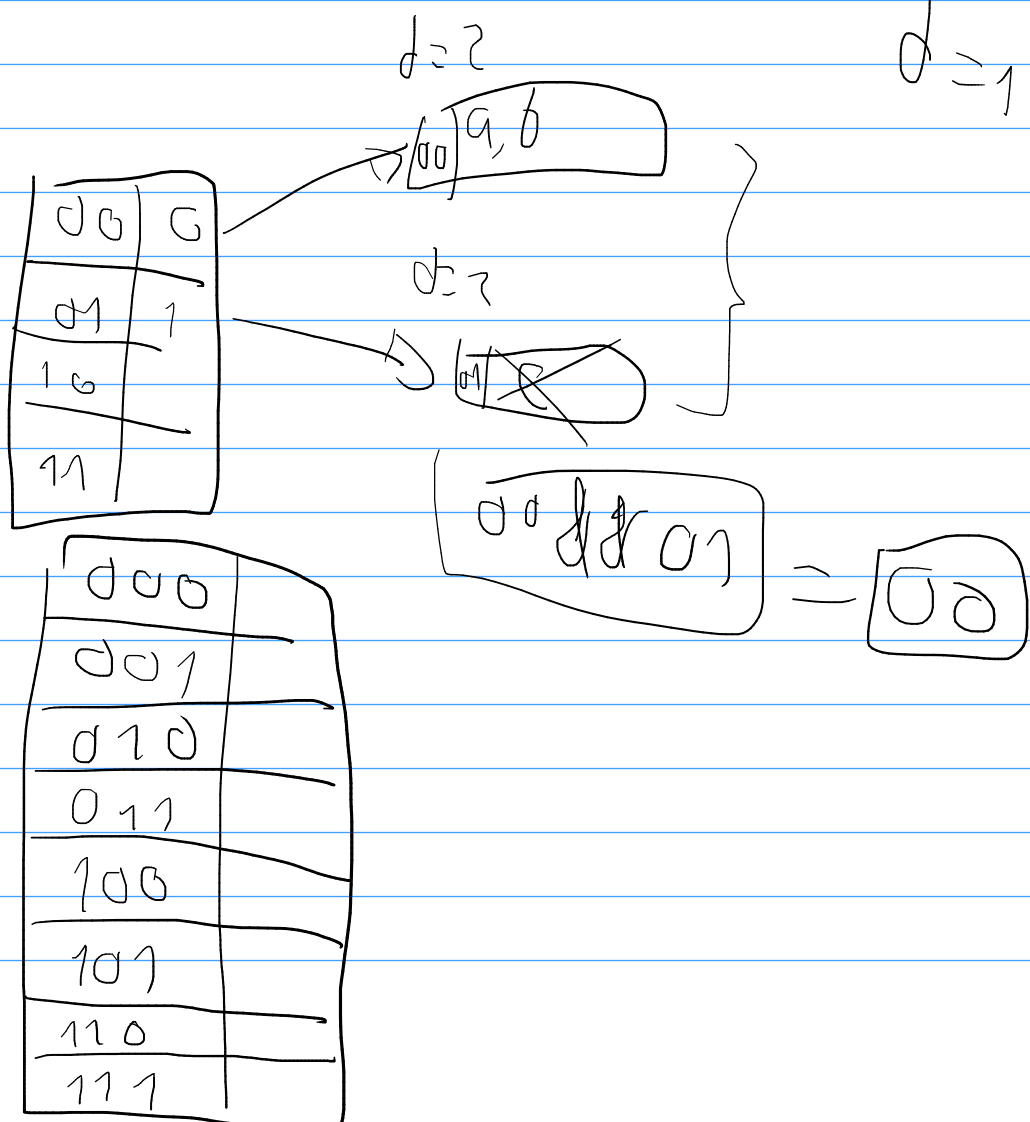 d=2
d=1
00 a, b
00 0
d=2
01 1
01 c
10
11
00 && 01 = 00
000
001
010
011
100
101
110
111